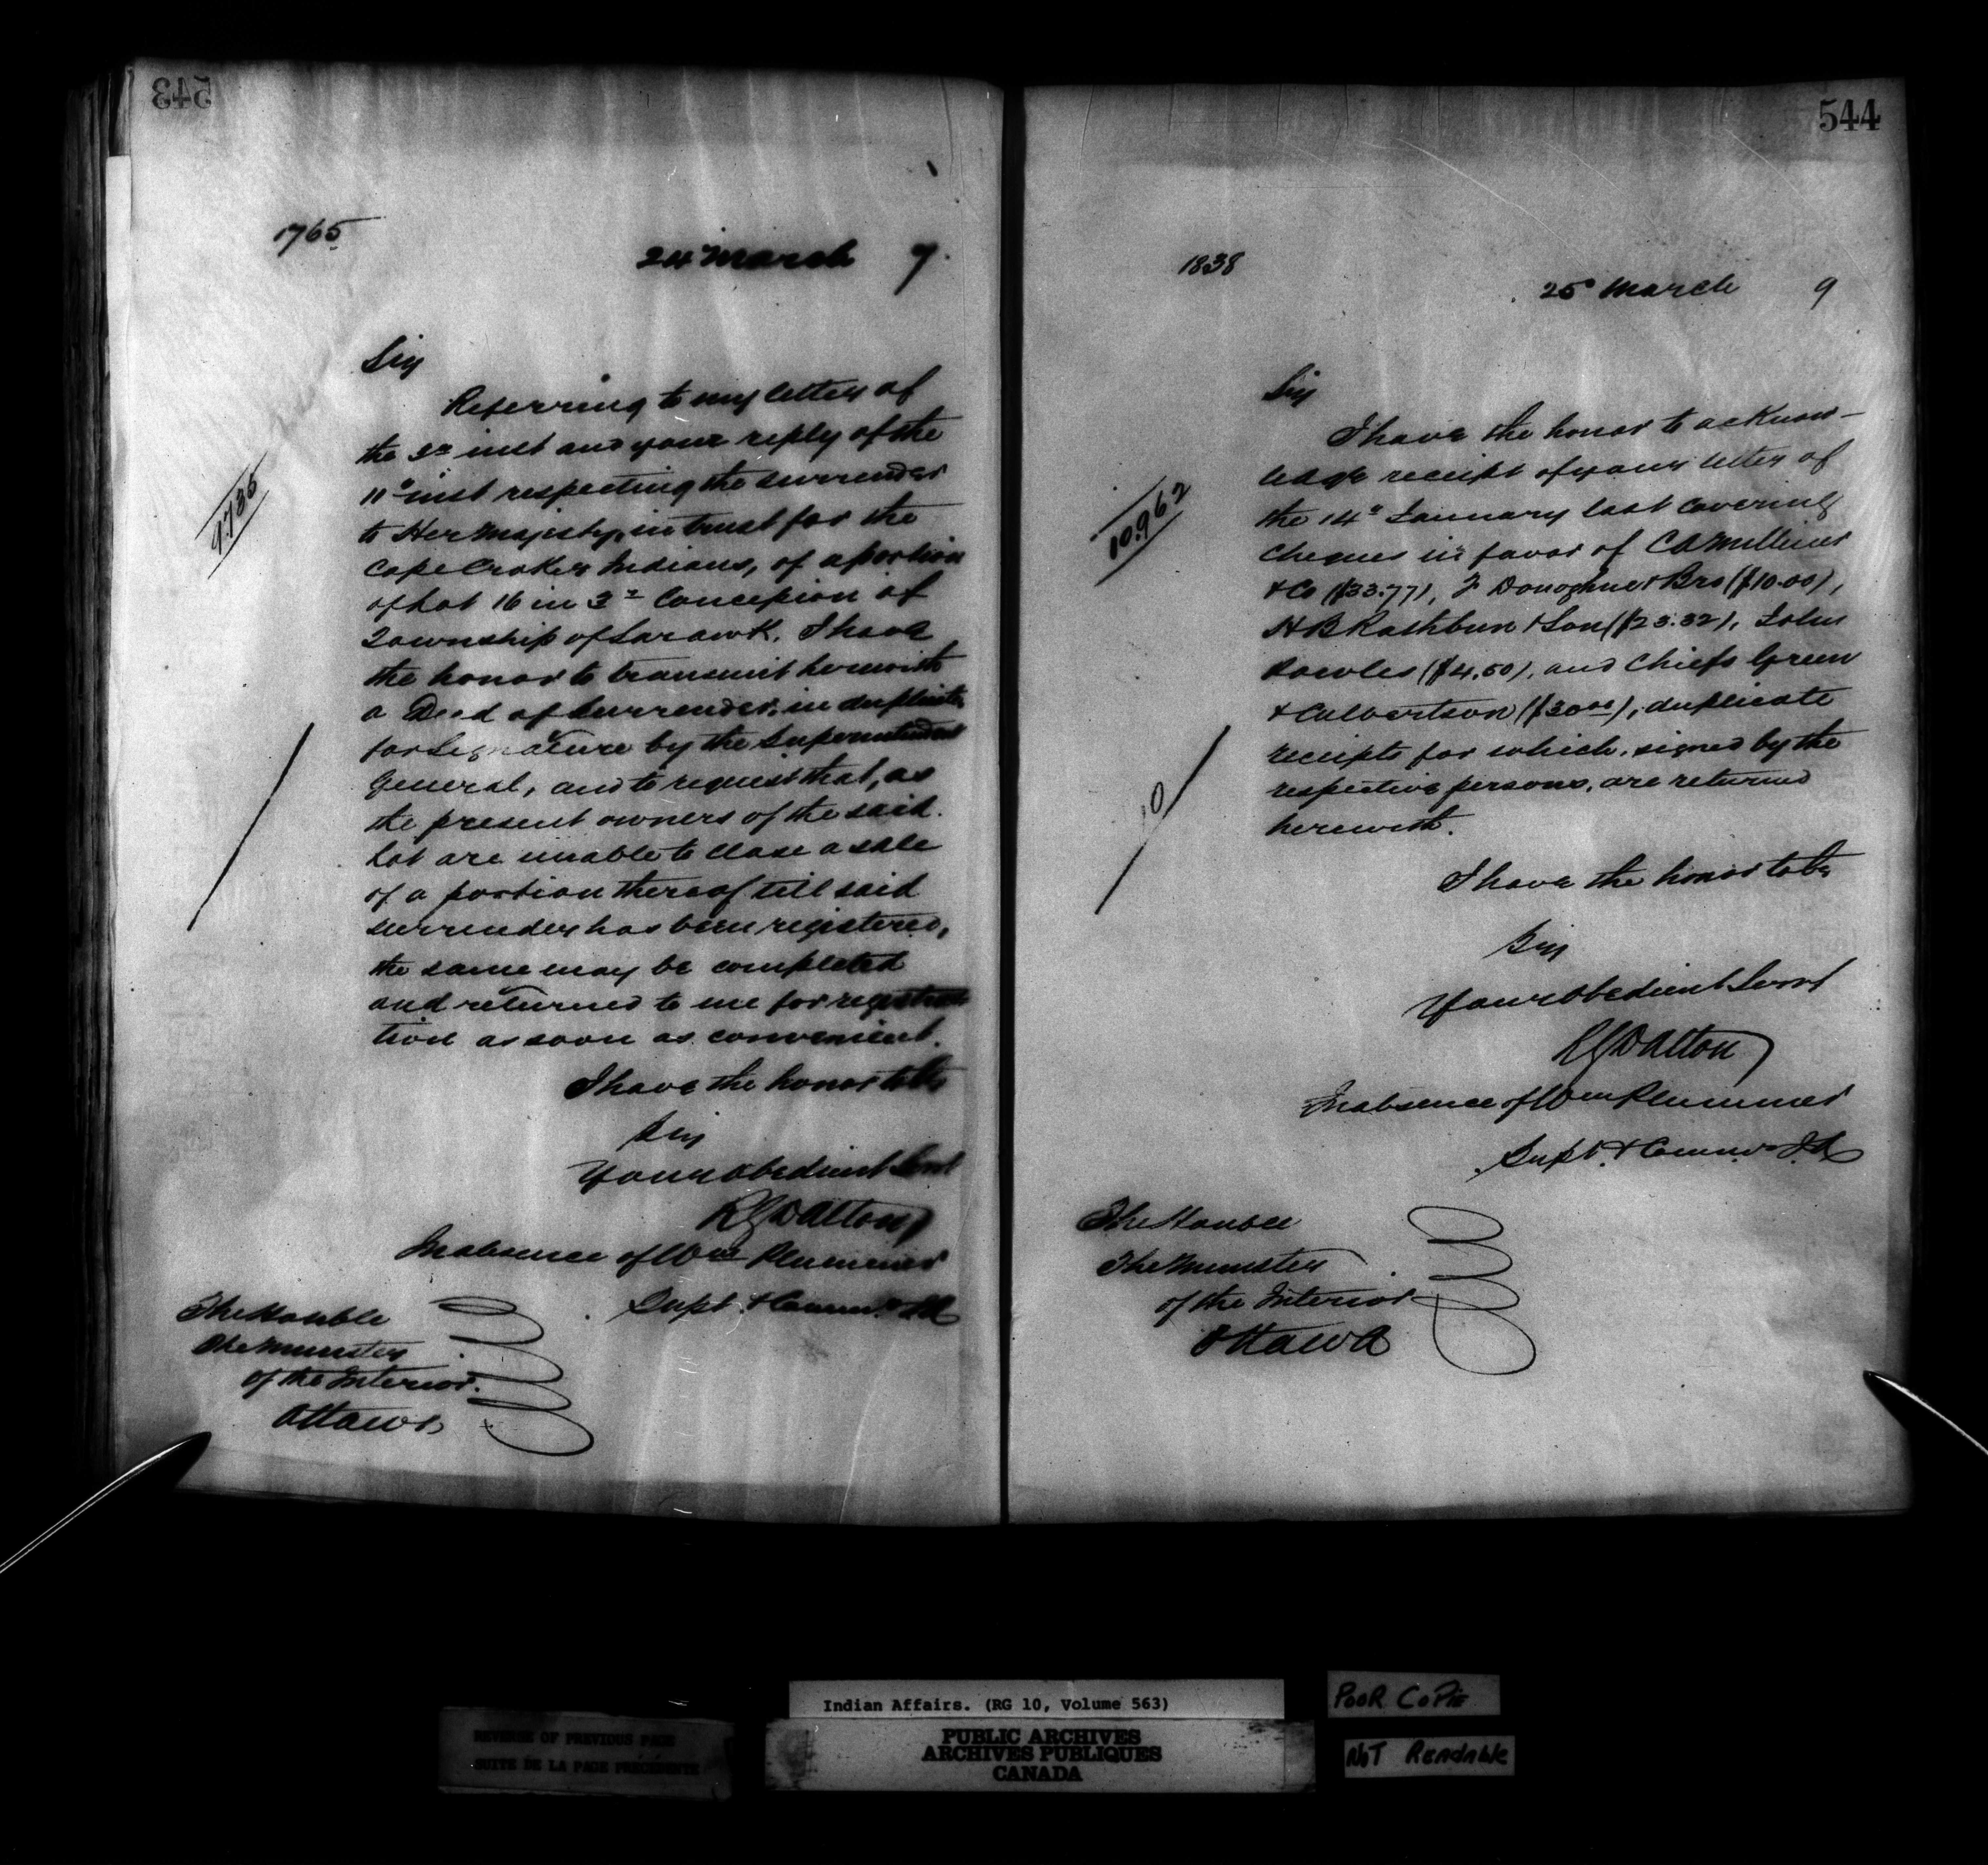 543
1765
24 March 9.
Sir
Referring to my letter of
the 3d inst and your reply of the
11th inst respecting the surrender
to Her Majesty, in trust for the
Cape Croker Indians, of a portion
of Lot 16 in 3d Concession of
Township of Sarawk. I have
the honor to transmit herewith
a Deed of Surrender, in duplicate
for Signature by the Superintendent
General, and to request that, as
the present owners of the said
Lot are unable to close a sale
of a portion thereof till said
surrender has been registered,
the same may be completed
and returned to me for registra
tion as soon as convenient.
I have the honor to be
Sir
Your obedient Servt
R G Dalton
In absence of Wm Plummer
Supt. & Commr. I A
The Honble
The Minister
of the Interior.
Ottawa
9735
544
1838
25 March 9
Sir
I have the honor to acknow-
ledge receipt of your letter of
the 14th January last covering
cheques in favor of
& Co ($33.77), F Donoghue & Bro ($10.00),
H B Rathbun & Son ($23.32), John
Bowles ($4.50), and Chiefs Green
& Culbertson ($30.00); duplicate
receipts for which, signed by the
respective persons, are returned
herewith.
I have the honor to be
Sir
Your obedient Servt
R G Dalton
In absence of Wm Plummer
Supt. & Commr I A
The Honble
The Minister
of the Interior
Ottawa
10.962
10
Indian Affairs. (RG 10, Volume 563)
PUBLIC ARCHIVES
ARCHIVES PUBLIQUES
CANADA
REVERSE OF PREVIOUS PAGE
SUITE DE LA PAGE PRÉCÉDENTE
POOR COPIE
NOT READABLE